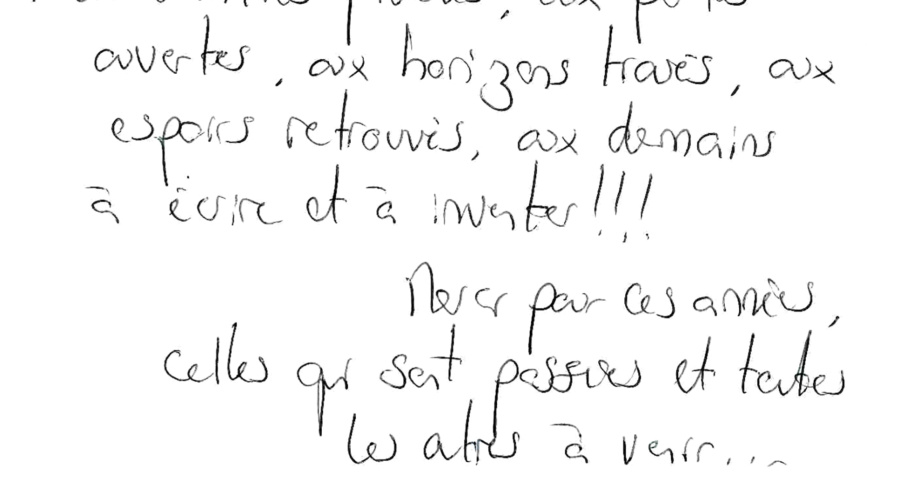 aux
ouvertes, aux horizons tracés, aux
espoirs retrouvés, aux demains
à écrire et à inventer!!!
Merci pour ces années,
celles qui sont passées et toutes
les autres à venir...